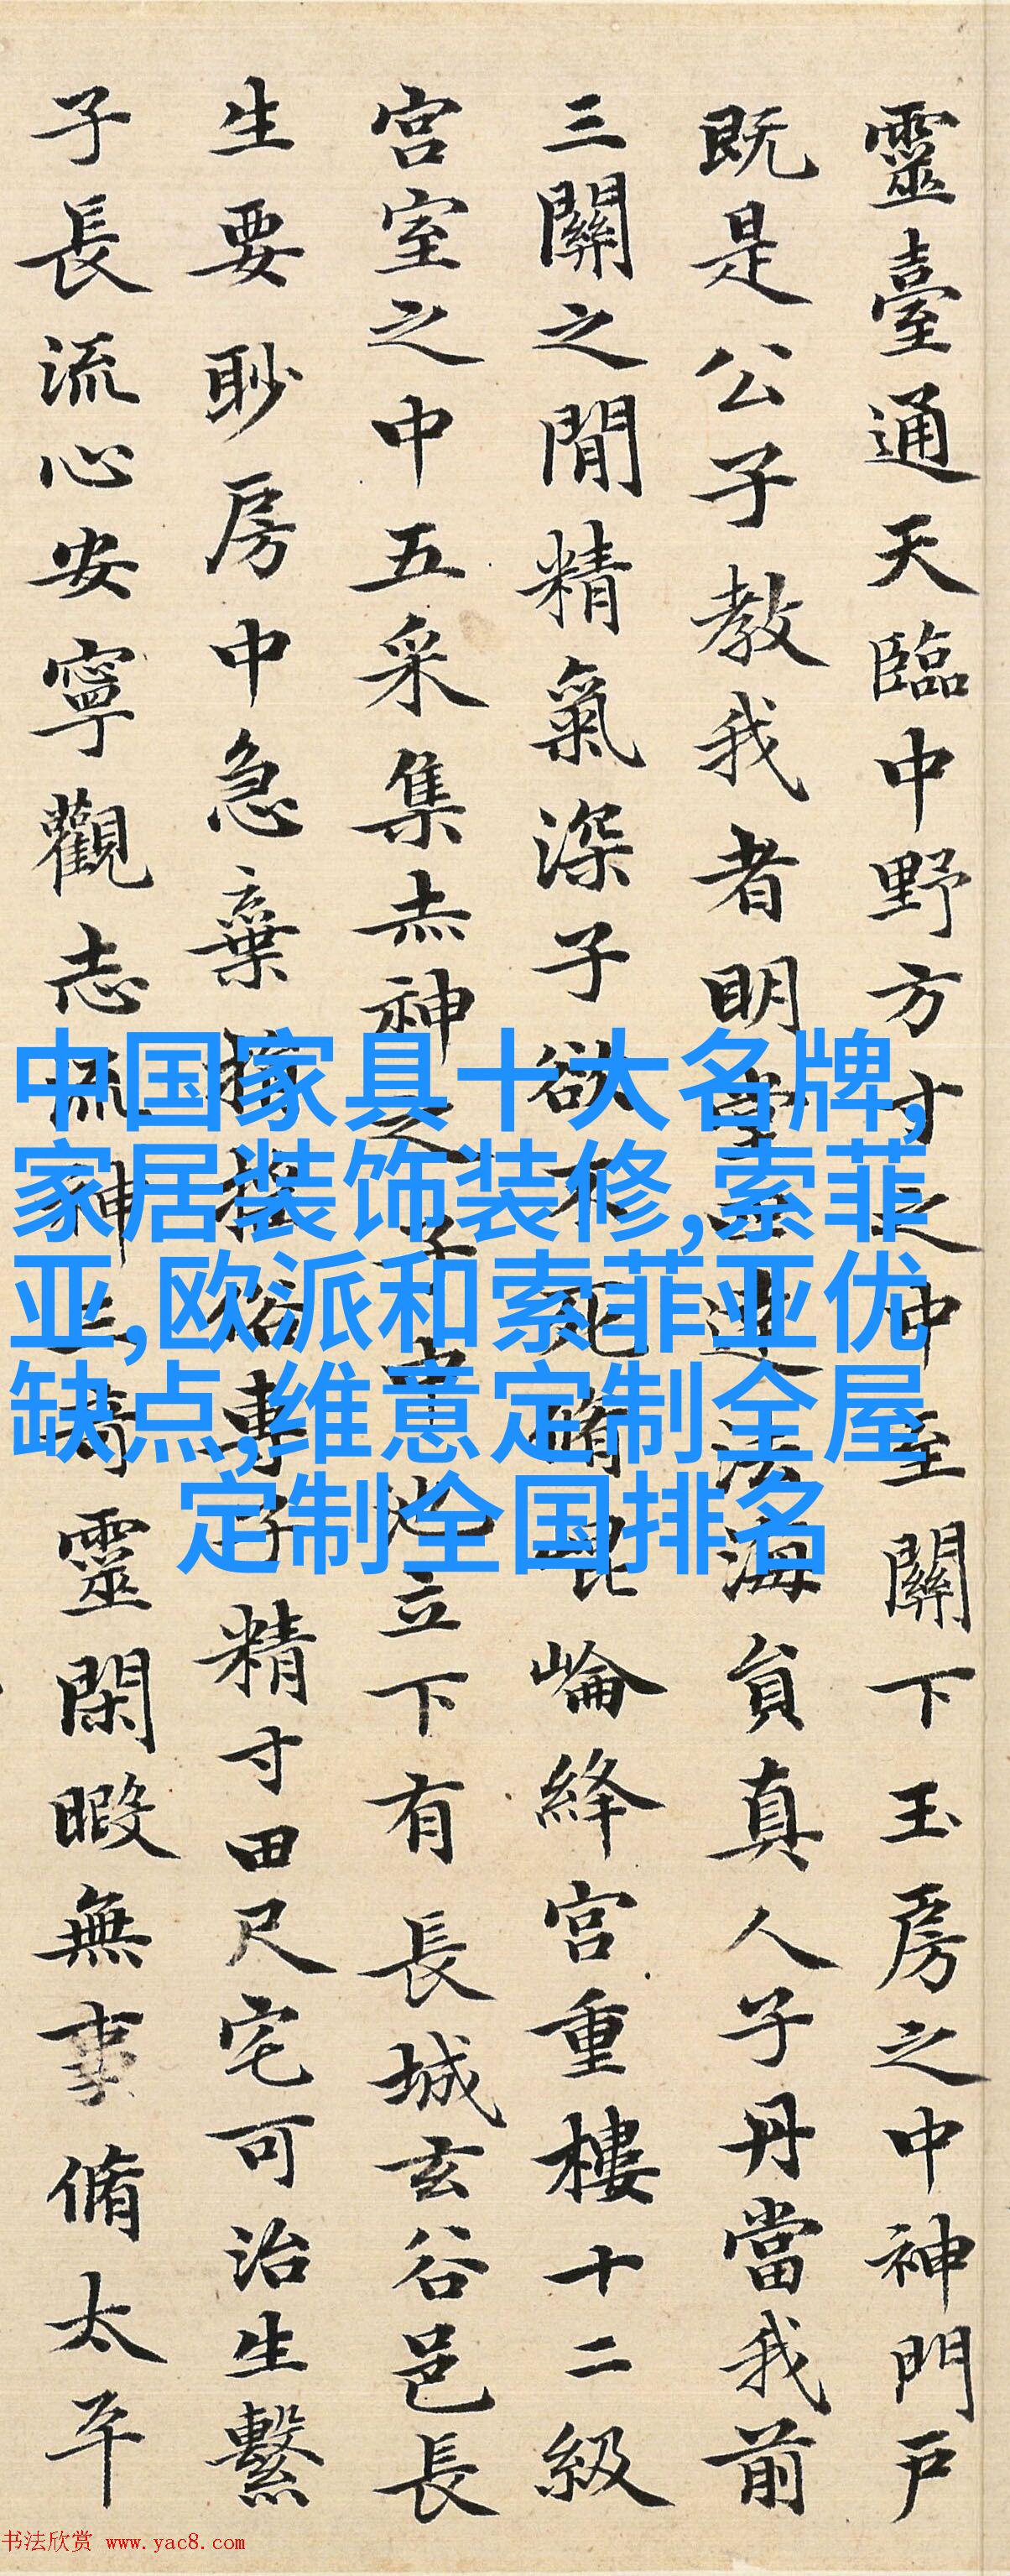 靈臺通天臨中野方寸之中至關下玉房之中神門戶
既是公子教我者明堂四達法海貟真人子丹當我前
三關之閒精氣深子欲不死脩崐崘絳宮重樓十二級
宮室之中五采集赤神之子中池立下有長城玄谷邑長
生要眇房中急棄捐搖俗專子精寸田尺宅可治生繫
子長流心安寧觀志流神三奇靈閑暇無事脩太平
中国家具十大名牌,
家居装饰装修,索菲
亚,欧派和索菲亚优
缺点,维意定制全屋
定制全国排名
书法欣赏 www.yac8.com